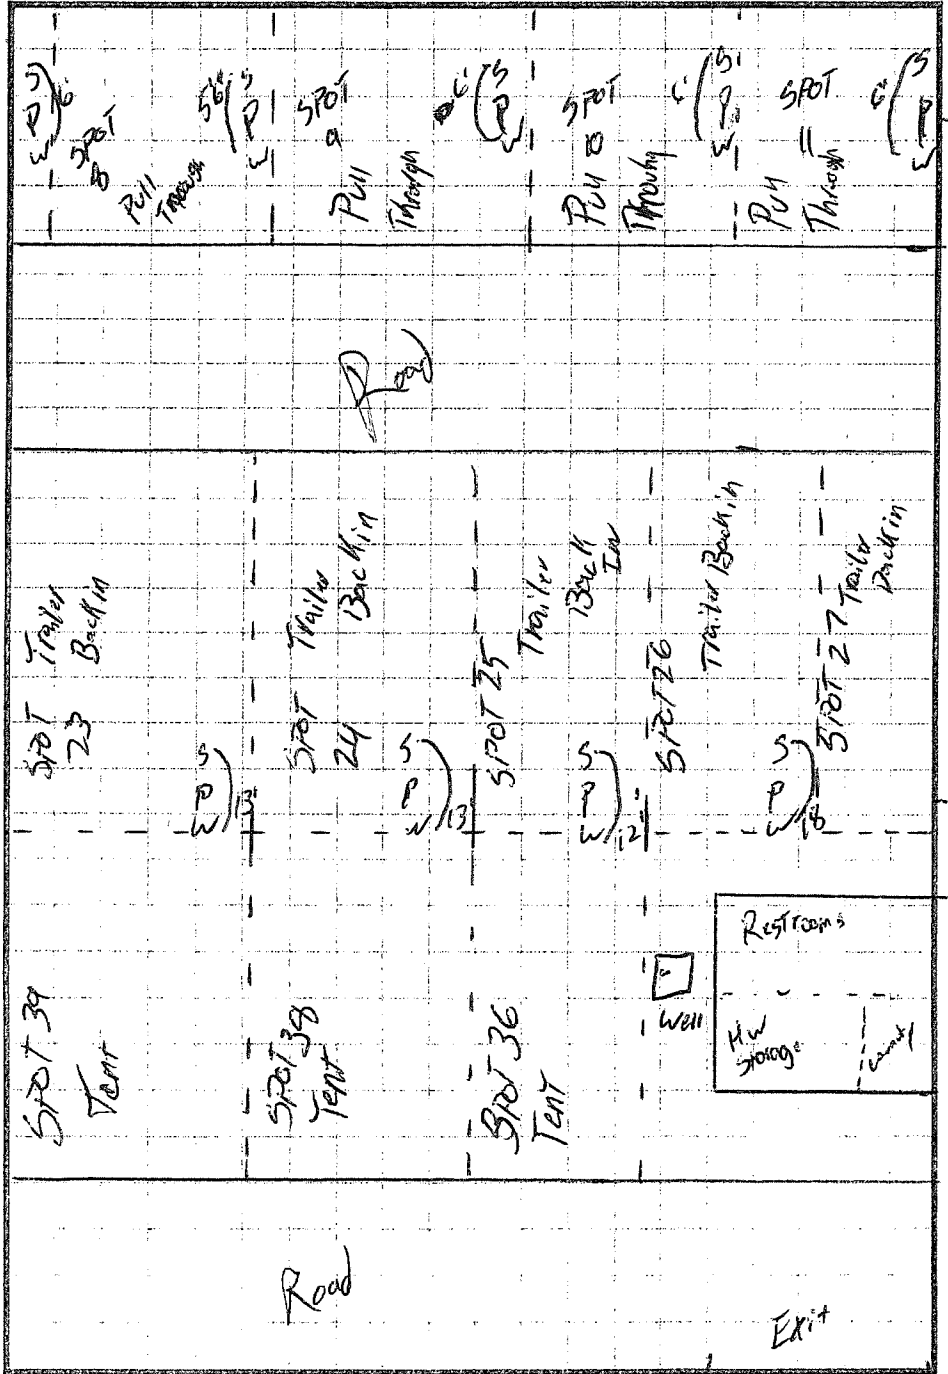 S
P
W
6'
SPOT
8
Pull
Through
5'6"
S
P
W
SPOT
9
Pull
Through
6'
S
P
W
SPOT
10
Pull
Through
6'
S
P
W
SPOT
11
Pull
Through
6'
S
P
W
Road
SPOT
23
Trailer
Back in
S
P
W
13'
SPOT
24
Trailer
Back in
S
P
W
13
SPOT 25
Trailer
Back
In
S
P
W
12'
SPOT 26
Trailer Back in
S
P
W
18
SPOT 27
Trailer
Back in
SPOT 39
Tent
SPOT 38
Tent
SPOT 36
Tent
Well
Restrooms
HW
Storage
Road
Exit